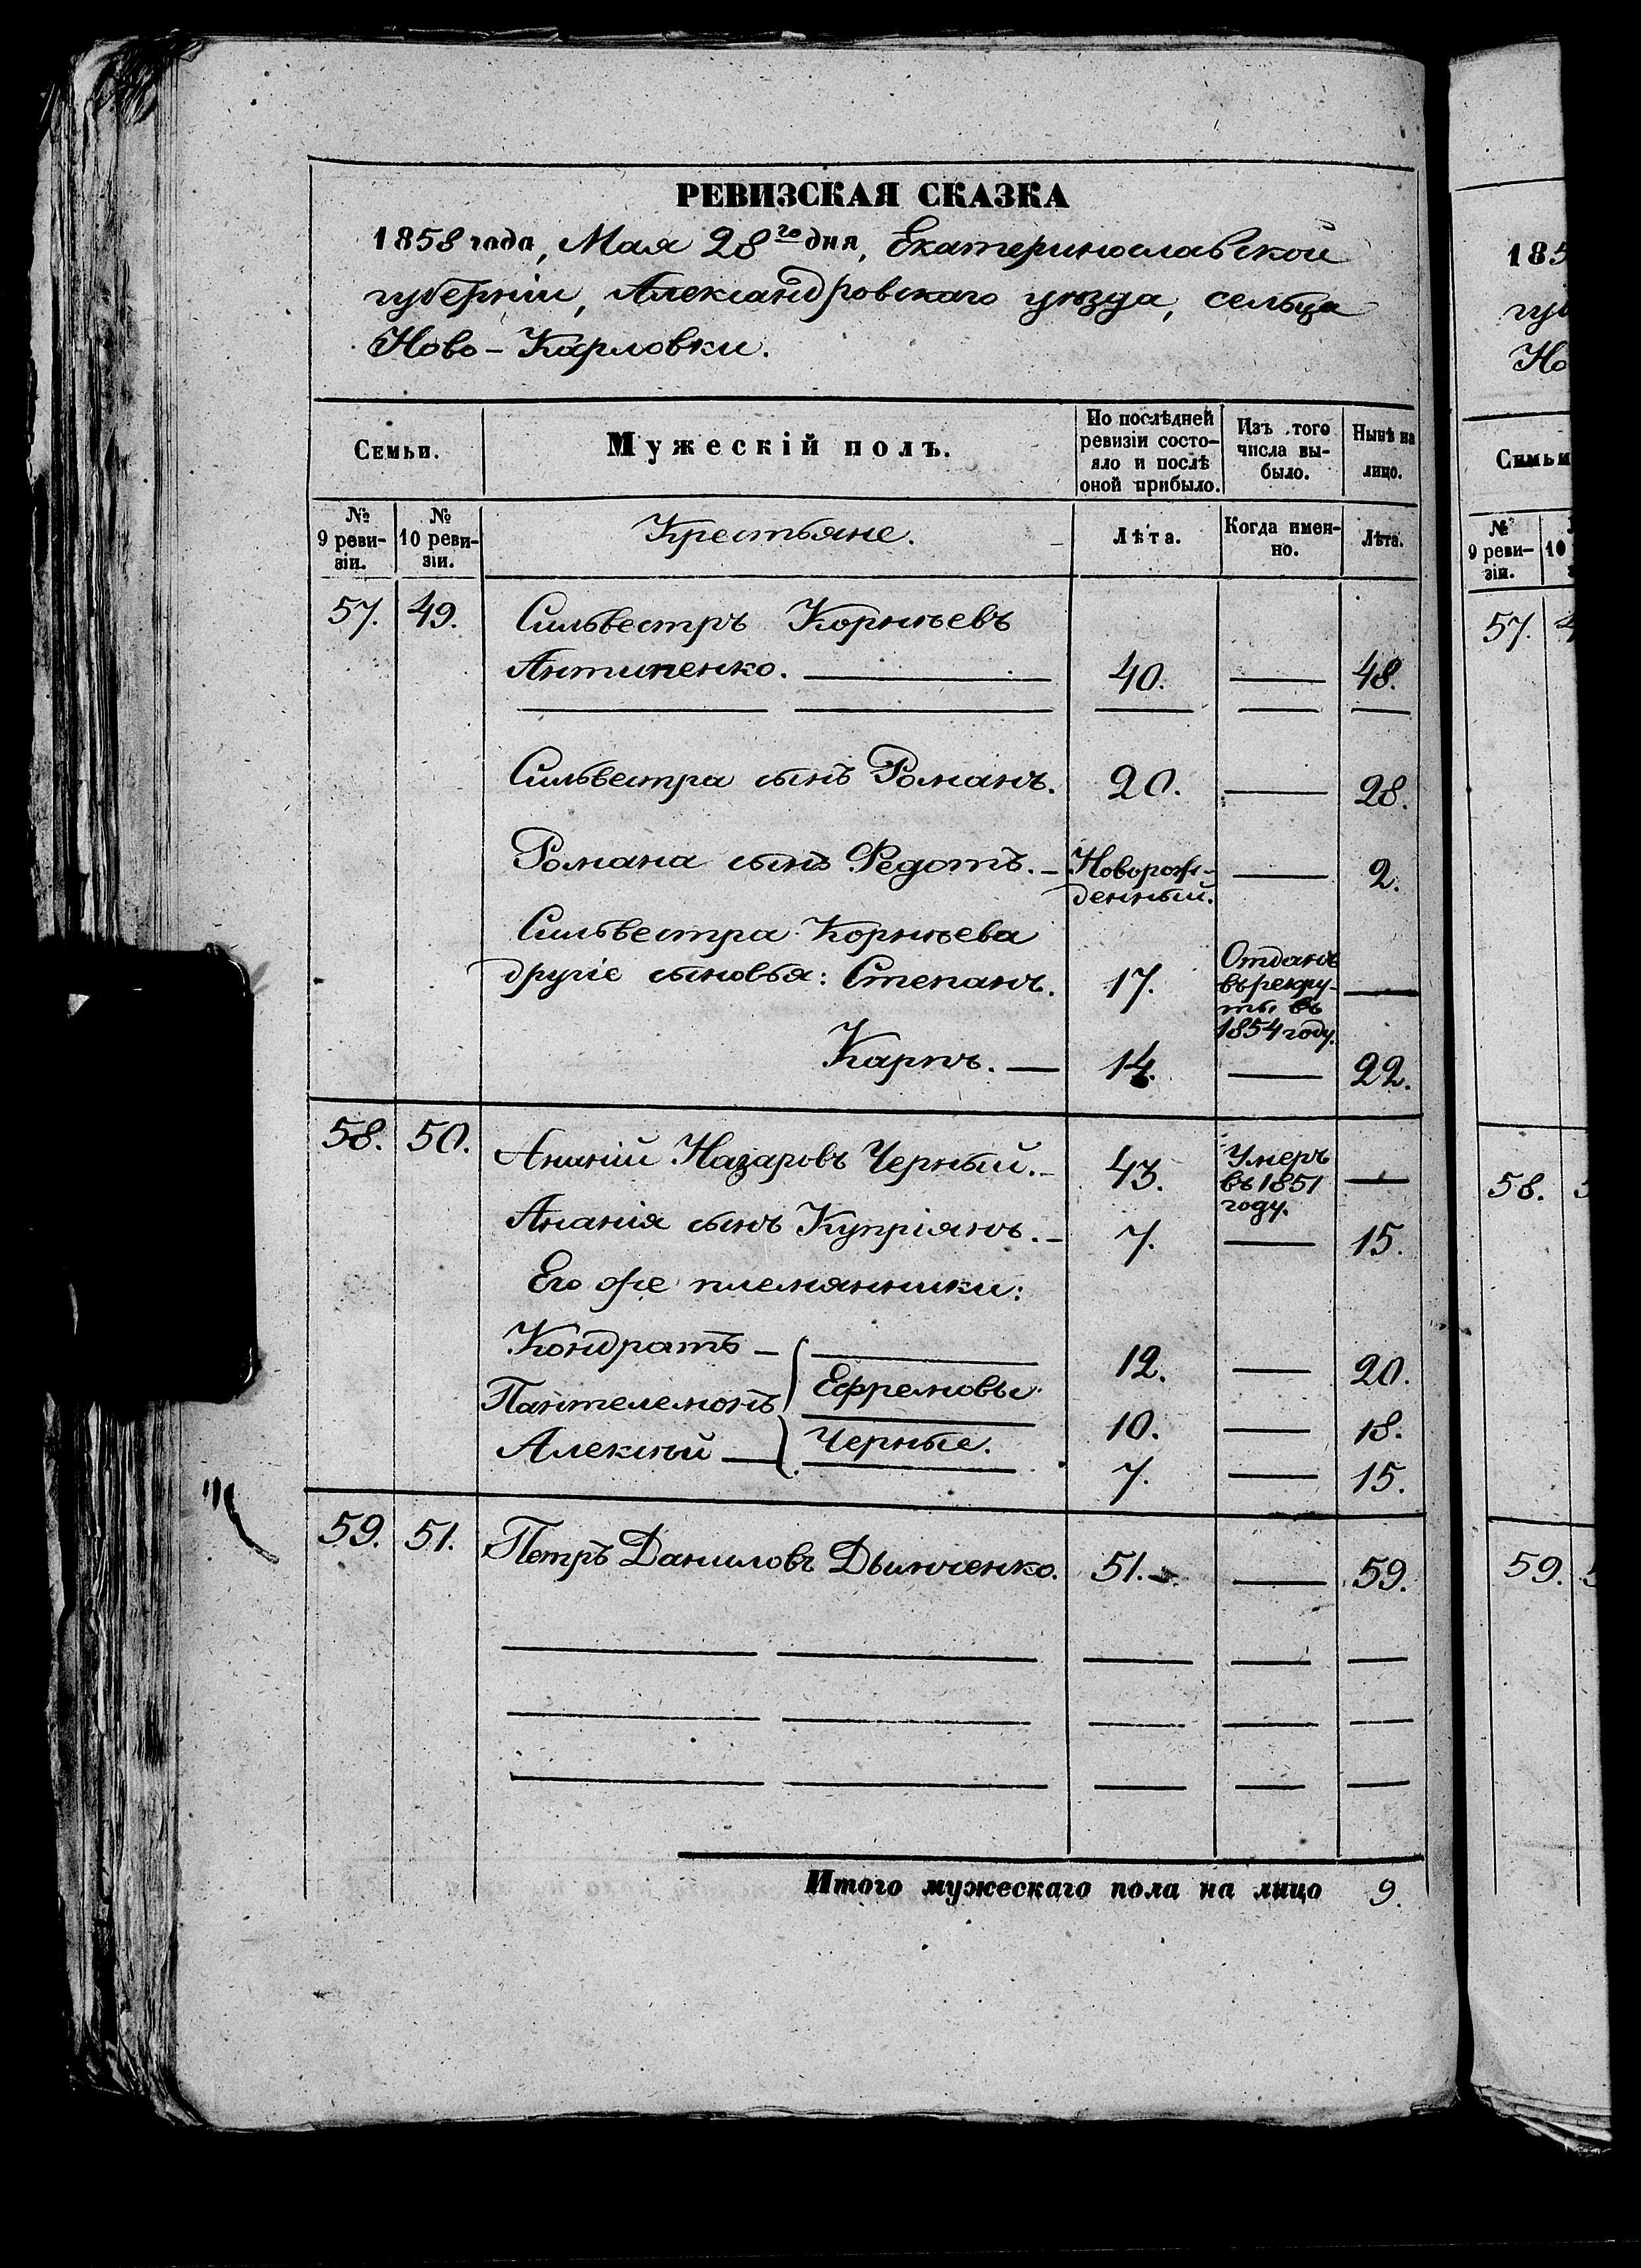 РЕВИЗСКАЯ СКАЗКА
1858 года, Мая 28го дня, Екатеринославской
губерніи, Александровскаго уѣзда, сельца
Ново-Карловки.
Семьи.
Мужескій полъ.
По послѣдней
ревизіи состо-
яло и послѣ
оной прибыло.
Изъ того
числа вы-
было.
Нынѣ на
лицо.
№
9 реви-
зіи.
№
10 реви-
зіи.
Крестьяне.
Лѣта.
Когда имен-
но.
Лѣта.
57. 49. Сильвестръ Корнѣевъ
Антипенко. — 40. — 48.
Сильвестра сынъ Романъ. 20. — 28.
Романа сынъ Федотъ. — Новорож-
денный. — 2.
Сильвестра Корнѣева
другіе сыновья: Степанъ. 17. Отданъ
въ рекру-
ты въ
1854 году. —
Карпъ. — 14. — 22.
58. 50. Ананій Назаровъ Черный. — 43. Умеръ
въ 1851
году. —
Ананія сынъ Купріянъ. — 7. — 15.
Его же племянники:
Кондратъ — 12. — 20.
Пантелемонъ Ефремовы 10. — 18.
Алексѣй — Черные. 7. — 15.
59. 51. Петръ Даниловъ Дьинченко. 51. — 59.
Итого мужескаго пола на лицо 9.
185
гу
Но
Семьи
№
9 реви-
зіи.
10
57.
58.
59.